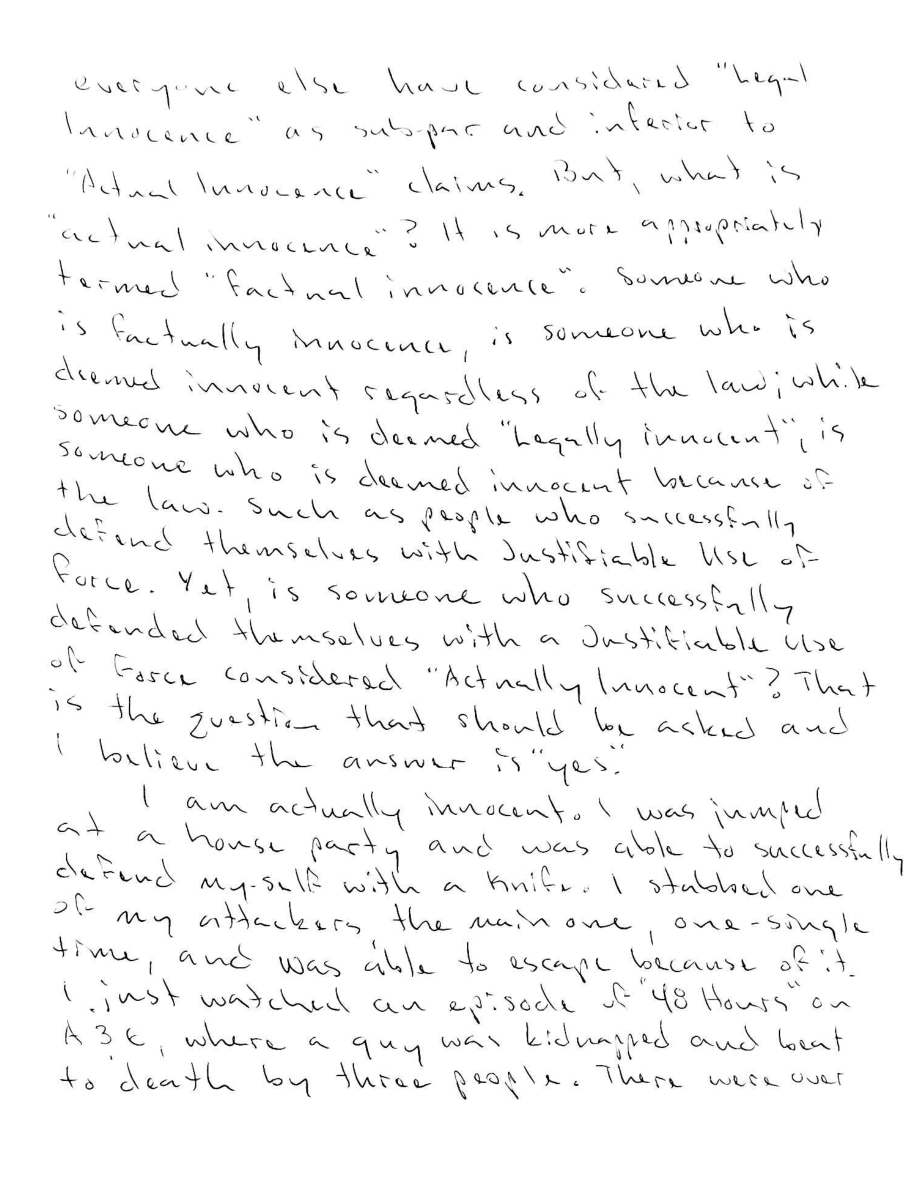 everyone else have considered "Legal
Innocence" as sub-par and inferior to
"Actual Innocence" claims. But, what is
"actual innocence"? It is more appropriately
termed "factual innocence". Someone who
is factually innocence, is someone who is
deemed innocent regardless of the law; while
someone who is deemed "Legally innocent", is
someone who is deemed innocent because of
the law. Such as people who successfully
defend themselves with Justifiable Use of
Force. Yet, is someone who successfully
defended themselves with a Justifiable Use
of Force considered "Actually Innocent"? That
is the question that should be asked and
I believe the answer is "yes."
I am actually innocent. I was jumped
at a house party and was able to successfully
defend my-self with a knife. I stabbed one
of my attackers, the main one, one-single
time, and was able to escape because of it.
I just watched an episode of "48 Hours" on
A & E, where a guy was kidnapped and beat
to death by three people. There were over